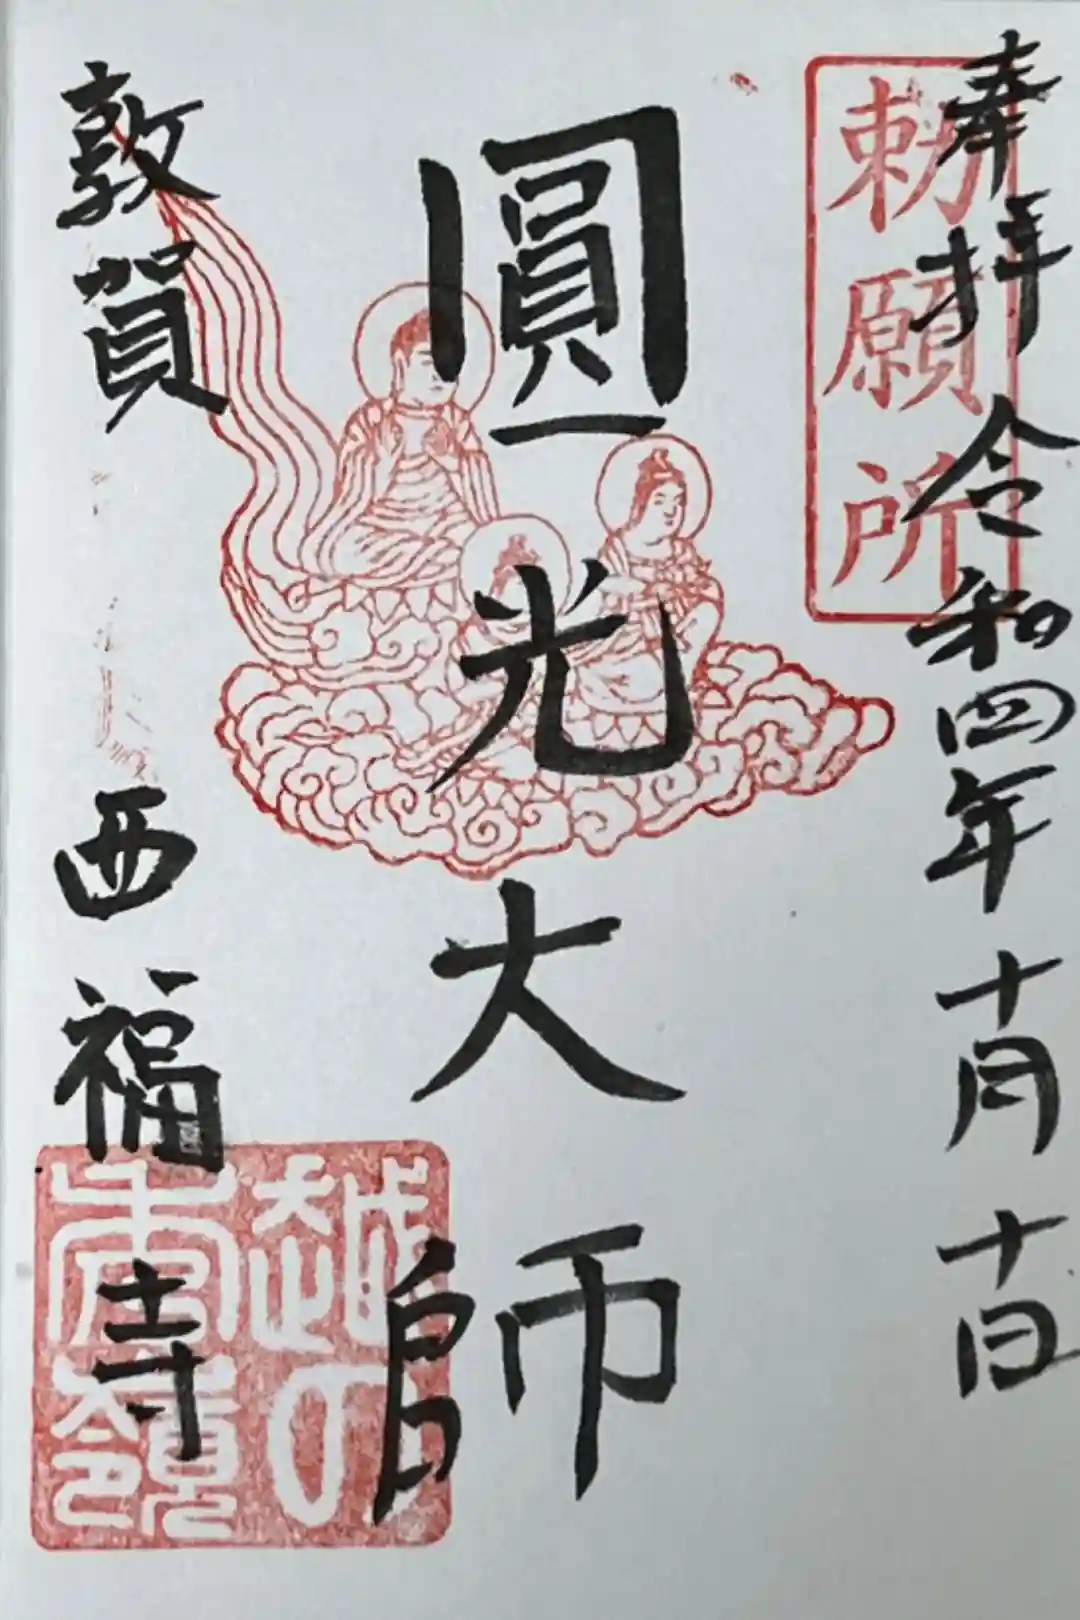 奉拝 令和四年十月十日
勅願所
圓光大師
敦賀 西福寺
越の秀嶺